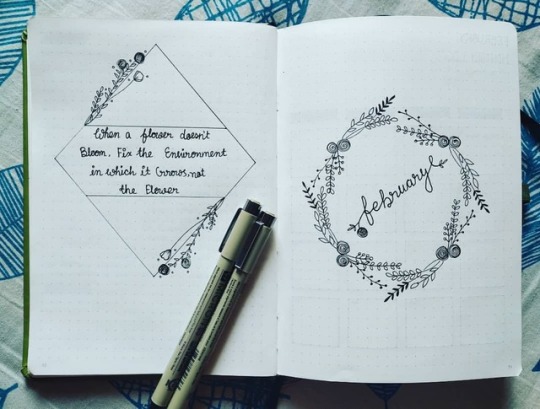 When a flower doesn't
Bloom, Fix the Environment
in which it Grows, not
the Flower
february